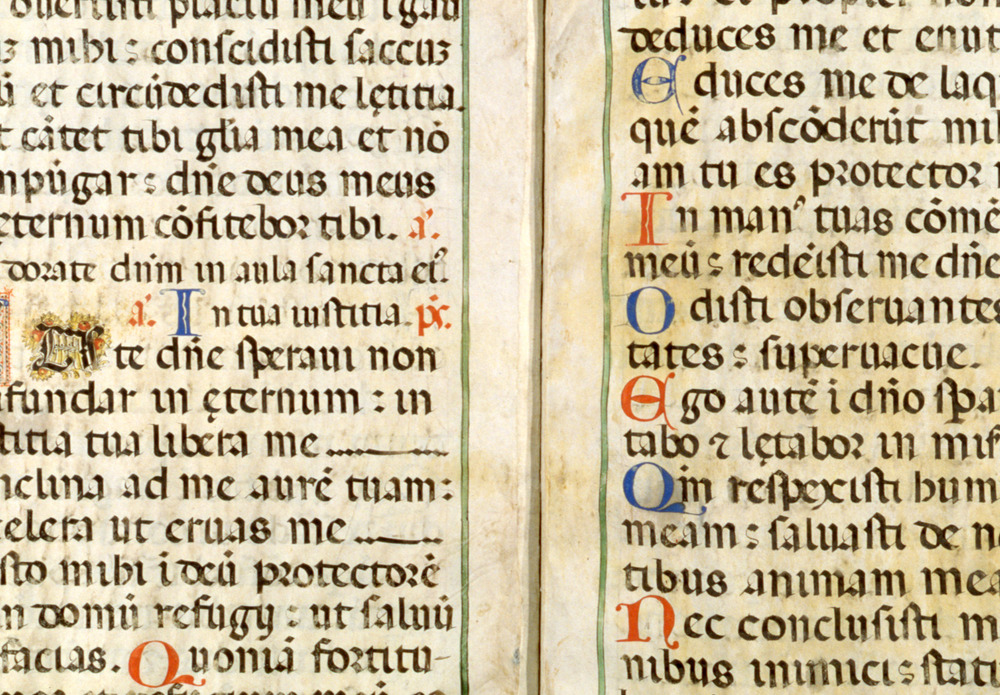 planctu meu i gau
mihi : conscidisti saccu3
et circūdedisti me lętitia.
cātet tibi gl̄ia mea et nō
npūgar : dn̄e deus meus
ęternum cōfitebor tibi. a͛.
dorate dn̄m in aula sancta ei͛.
a͛. In tua iusticia. p̄x.
te dn̄e speraui non
fundar in ęternum : in
titia tua libera me
nclina ad me aurē tuam :
celera ut eruas me
sto mihi i deū protectorē
n domū refugij : ut saluū
facias. Quoniā fortitu-
deduces me et enut
Educes me de laq
quē abscōderūt mi
am tu es protector
In man⁹ tuas cōmē
meū : redēisti me dn̄e
Odisti obseruantes
tates : superuacue.
Ego autē i dn̄o spa
tabo ⁊ lętabor in mis
Qm̄ respexisti hum
meam : saluasti de n
tibus animam mea
Nec conclusisti m
nibus inimici : stati